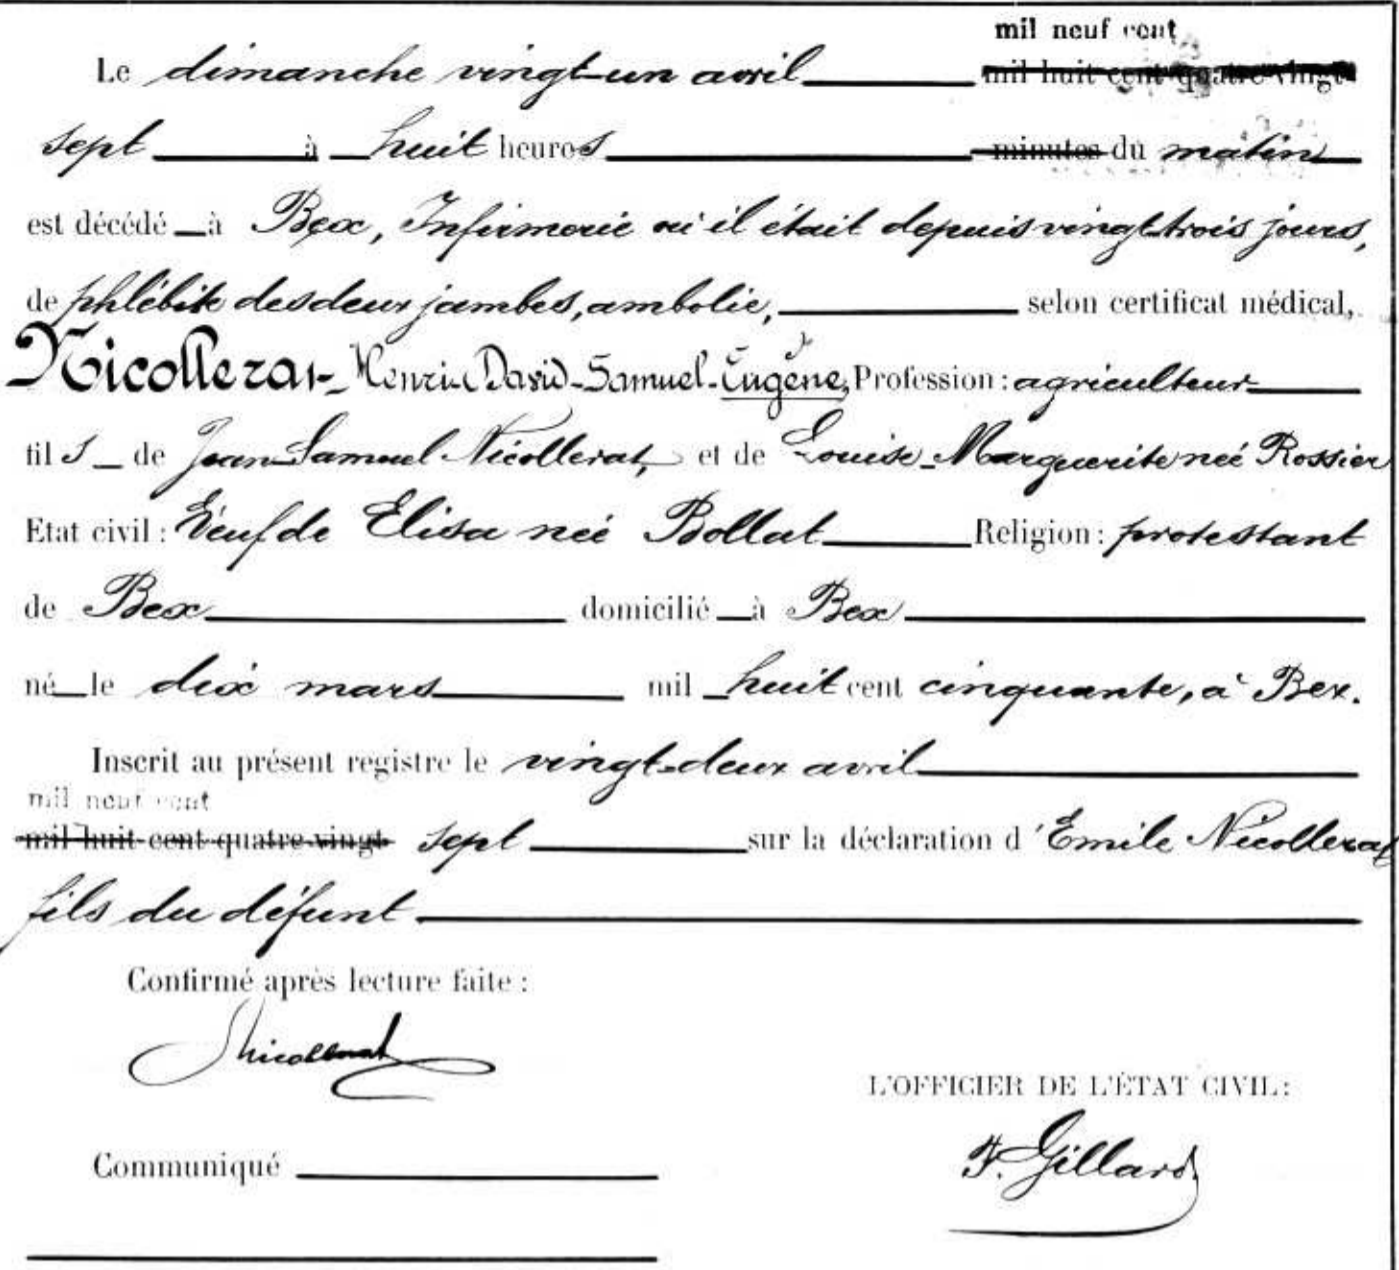 mil neuf cent
Le dimanche vingt-un avril mil huit cent quatre-vingt
sept à huit heures minutes du matin
est décédé à Bex, Infirmerie où il était depuis vingt-trois jours,
de phlébite des deux jambes, ambolie, selon certificat médical,
Nicollerat Henri-David-Samuel-Eugène, Profession : agriculteur
fils de Jean Samuel Nicollerat, et de Louise-Marguerite née Rossier
Etat civil : Veuf de Elisa née Bollat Religion : protestant
de Bex domicilié à Bex
né le dix mars mil huit cent cinquante, à Bex.
Inscrit au présent registre le vingt-deux avril
mil neuf cent
mil huit cent quatre-vingt sept sur la déclaration d'Emile Nicollerat
fils du défunt
Confirmé après lecture faite :
Nicollerat
L'OFFICIER DE L'ÉTAT CIVIL :
Communiqué
F. Gillard